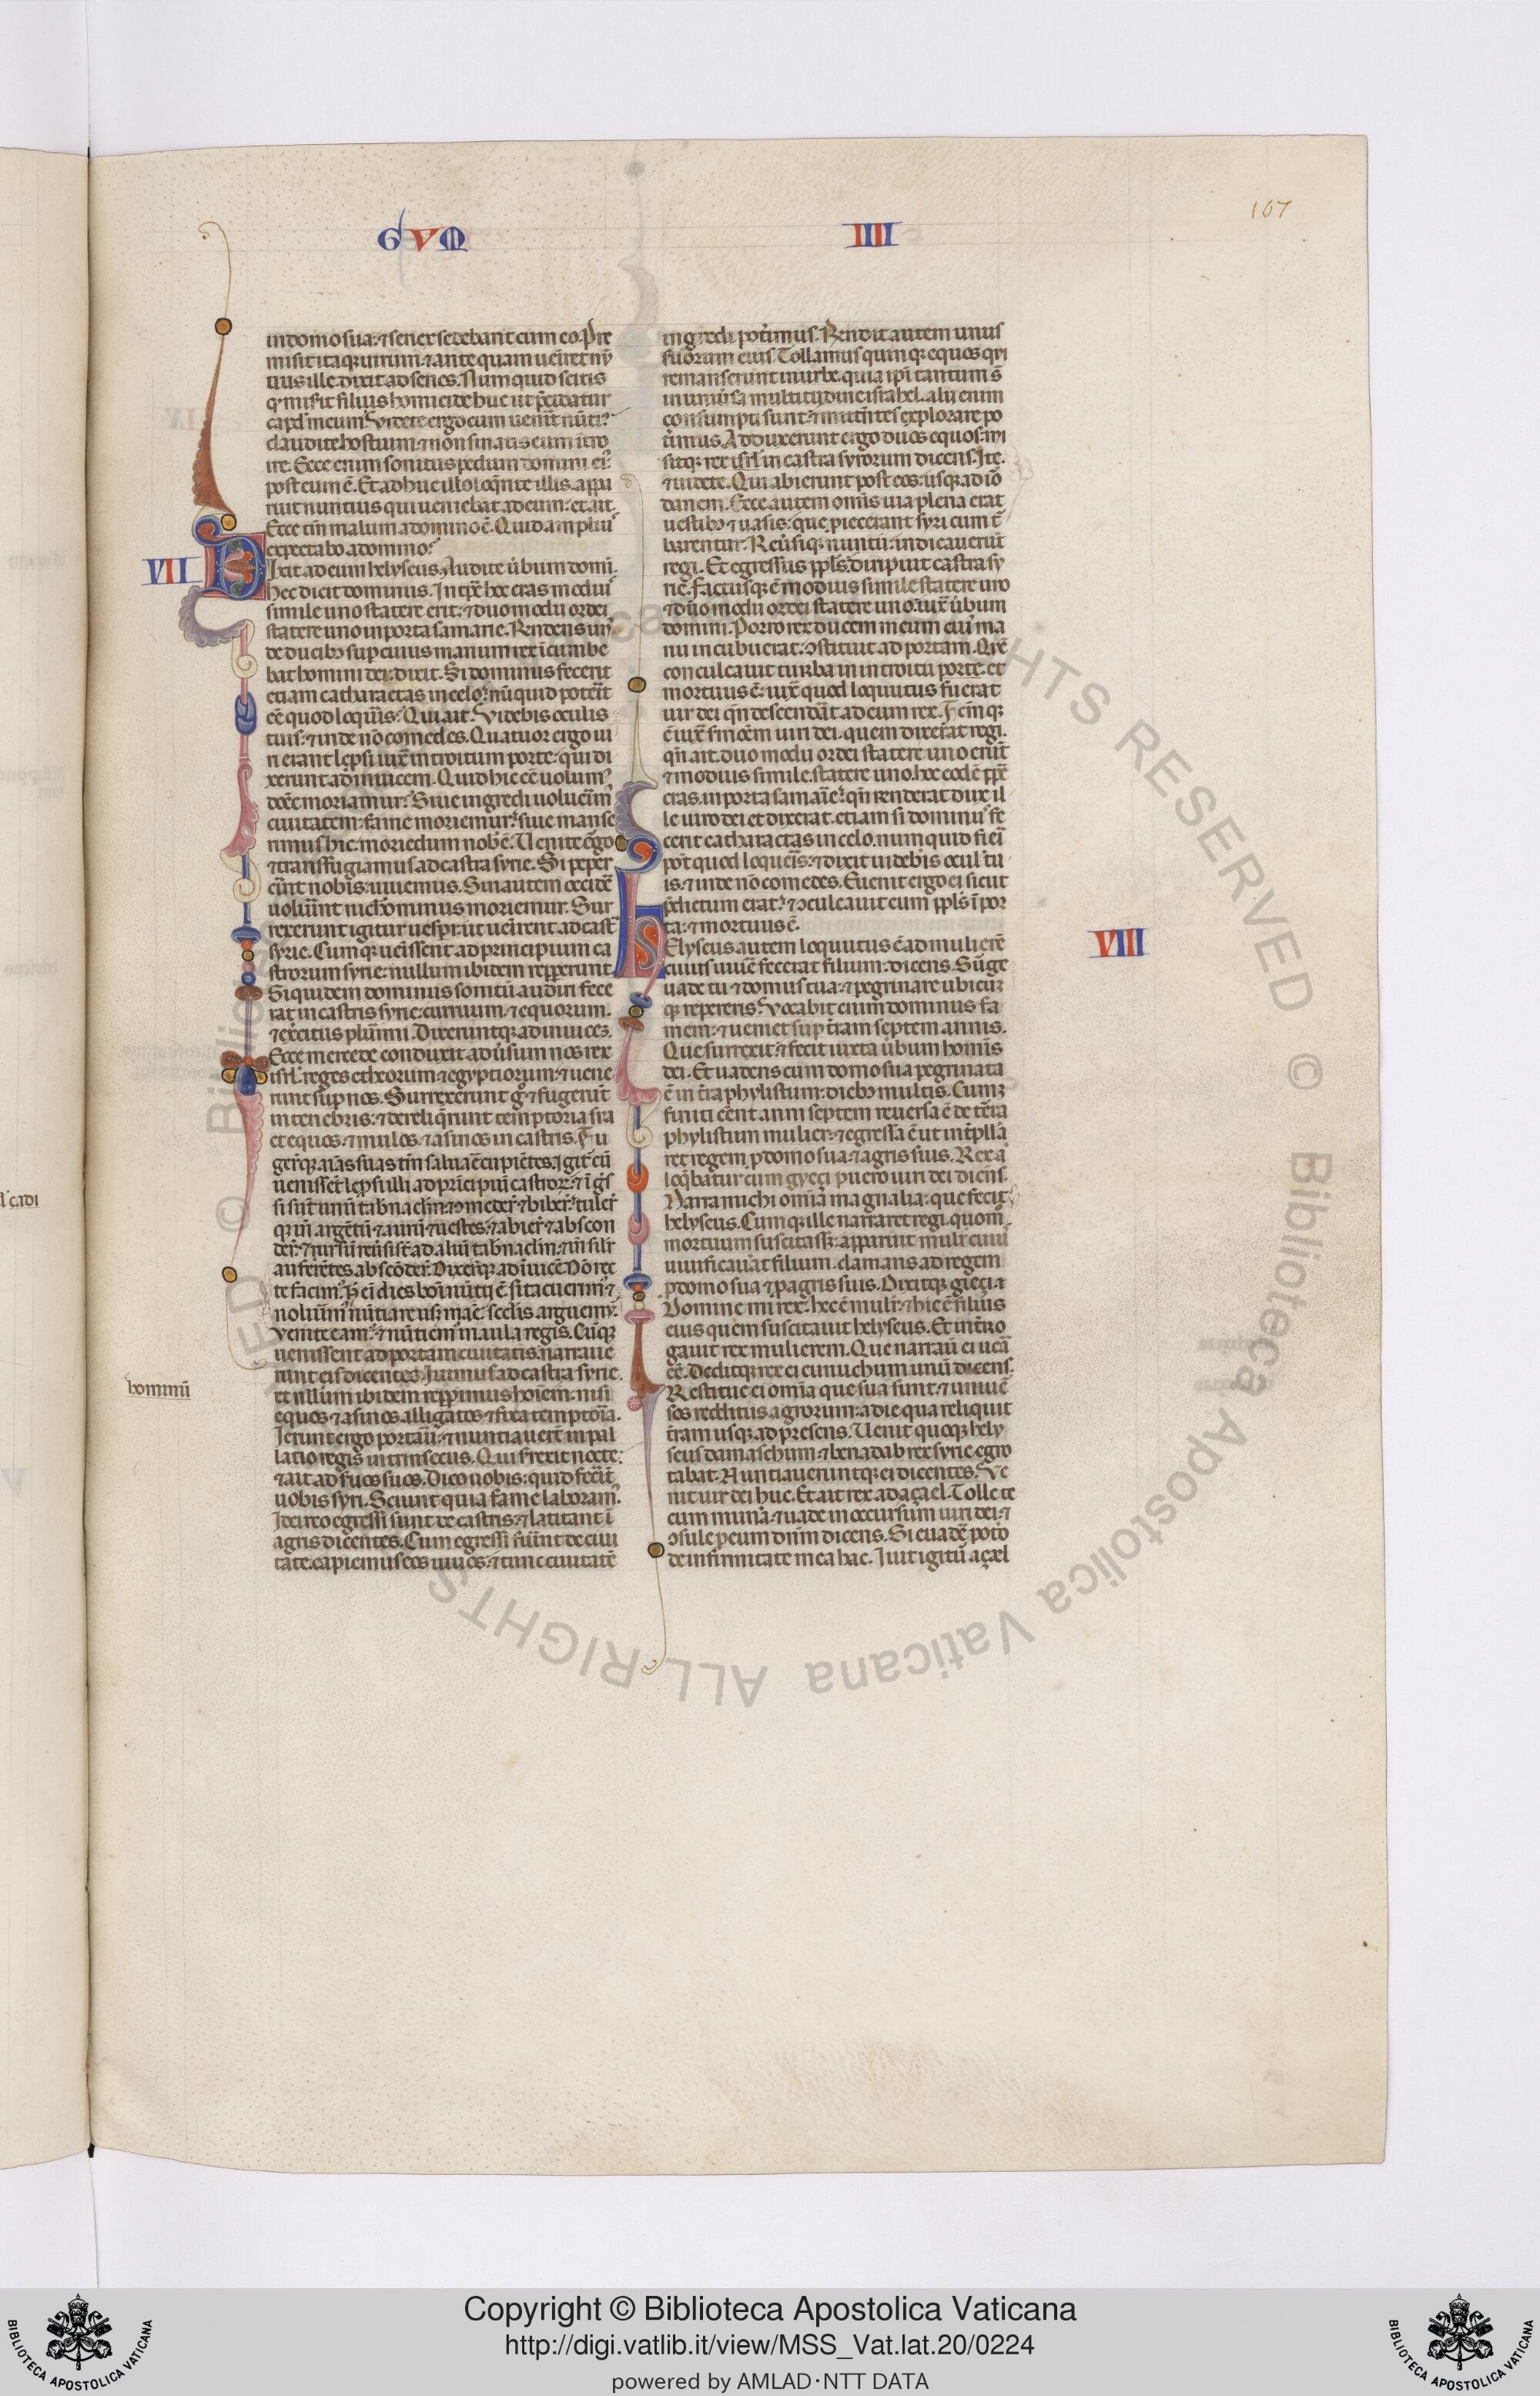 107
GVM
IIII
in domo sua: ⁊ senes sedebant cum eo. Pre
misit itaq; uirum: ⁊ ante quam ueniret nū
tius ille. dixit ad senes. Numquid scitis
q misit filius homicide huc ut p̄cidatur
capd̓ meum? Videte ergo cum uenĩt nūti?
claudite hostium: ⁊ non sinatis eum ītro
ire. Ecce enim sonitus pedum domini ei?
post eum ē. Et adhuc illo loq̄nte illis. appa
ruit nuntius qui ueniebat ad eum: et ait.
Ecce tm̄ malum a domino ē. Quid amplius
expectabo a domino?
VII
Dixit ad eum helyseus. Audite ūbum domī.
hec dicit dominus. In tp̄r hoc cras modius
simile uno statere erit: ⁊ duo modii ordei
statere uno in porta samarie. Rn̄dens un'
de ducib; sup cuius manum rex īcumbe
bat homini dei: dixit. Si dominus fecerit
etiam catharactas in celo: nūquid potēit
eē quod loq̄ris? Qui ait. Videbis oculis
tuis: ⁊ inde nō comedes. Quatuor ergo ui
ri erant lep̄si iux̄ introitum porte: qui di
xerunt ad inuicem. Quid hic eē uolum?
donec moriamur? Siue ingredi uoluerim̄
ciuitatem: fame moriemur: siue manse
rimus hic: moriēdum nob ē. Uenite ēgo
⁊ transfugiamus ad castra syrie. Si peper
cīnt nobis: uiuemus. Sin autem occidē
uolūint nichominus moriemur. Sur
rexerunt igitur uesp̄i: ut uenīrent ad cast̄
syrie. Cumq; uenissent ad principium ca
strorum syrie: nullum ibidem repp̄erunt.
Siquidem dominus sonitū audiri fece
rat in castris syrie: curruum: ⁊ equorum.
⁊ exc̄itus plūimi. Dixeruntq; ad inuicez.
Ecce mercede conduxit adūsum nos rex
isrl̄. reges etheorum ⁊ egyptiorum: ⁊ uene
runt sup nos. Surrexerunt g̊ ⁊ fugerūt
in tenebris: ⁊ dereliq̄runt temptoria sua
et equos: ⁊ mulos: ⁊ asinos in castris. Fu
gerq̄; aīas suas tm̄ saluare cupiētes. Igit̄ cū
uenissēt lep̄si illi ad prīcipiū castror̄: ⁊ īgs̄
si sūt unū tab̄naclm̄: ⁊ comeder̄: ⁊ biber̄: tuler̄
q; īn argētū ⁊ aurū ⁊ uestes: ⁊ abier̄ ⁊ abscon
der̄: ⁊ rursū reūsi sūt ad aliū tab̄naclm̄: ⁊ īn silr̄
auferētes abscōder̄. Dixerq̄; ad īuicē. Nō rec
te facim?. H̄ ēi dies boni nūtij ē. si tacuerim? ⁊
noluim̄? nūtiare usq; mane. sceleris arguemr̄.
Venite eam? ⁊ nūtiem? in aula regis. Cūq;
uenissent ad portam ciuitatis. narraue
runt eis dicentes. Iuimus ad castra syrie.
et nullum ibidem repp̄imus hoīem: nisi
equos ⁊ asinos alligatos ⁊ fixa temptoria.
Ierunt ergo portarii: ⁊ nuntiauerūt in pal
latio regis intrinsecus. Qui surexit nocte:
⁊ ait ad s̄uos suos. Dico uobis: quid fecerīt
uobis syri. Sciunt quia fame laboram?.
Idcirco egressi sunt de castris: ⁊ latitant ī
agris dicentes. Cum egressi fuīnt de ciui
tate. capiemus eos uiuos: ⁊ tunc ciuitatē
ingredi potīimus. Rn̄dit autem unus
s̄uorum eius. Tollamus quinq; equos qui
remanserunt in urbe. quia ipī tantum s̄
in uniūsa multitudine israhel. alij enim
consumpti sunt: ⁊ mittentes explorare po
tīimus. Adduxerunt ergo duos equos: mi
sitq; rex isrl̄ in castra syrorum dicens. Ite.
⁊ uidete. Qui abierunt post eos: usq; ad iō
danem. Ecce autem omīs uia plena erat
uestib; ⁊ uasis: que p̄iecerant syri cum t̄
barentur. Reūsiq; nuntii: indicauerūt
regi. Et egressus ppl̄s: diripuit castra sy
rie. factusq; ē modius simile statere uno
⁊ duo modii ordei statere uno: iux̄ ūbum
domini. Porro rex ducem in cuius ma
nu incubuerat: ꝯstituit ad portam. Que
conculcauit turba in introitu porte. et
mortuus ē: iux̄ quod loquutus fuerat
uir dei qn̄ descendāt ad eum rex. Fcm̄q;
ē iux̄ sm̄oēm uiri dei. quem dixerat regi.
qn̄ ait. duo modii ordei statere uno erūt
⁊ modius simile. statere uno. hoc eodē tp̄r
cras. in porta samaīe: qn̄ rn̄derat dux il
le uiro dei et dixerat. etiam si dominus fe
cerit catharactas in celo. numquid fi ei
pot̄ quod loqueris? ⁊ dixit uidebis ocul̄ tu
is: ⁊ inde nō comedes. Euenit ergo ei sicut
p̄dictum erat: ⁊ ꝯculcauit eum ppl̄s ī por
ta: ⁊ mortuus ē.
VIII
Helyseus autem loquutus ē ad mulierē
cuius uiuē fecerat filium: dicens. Sūge
uade tu ⁊ domus tua: ⁊ pegrinare ubicū
q; reperis. Vocabit enim dominus fa
mem: ⁊ ueniet sup t̄ram septem annis.
Que surrexit: ⁊ fecit iuxta ūbum homīs
dei. Et uadens cum domo sua pegrinata
ē in t̄ra phylistum: dieb; multis. Cumq;
finiti eēnt anni septem reuersa ē de tēra
phylistum mulier: ⁊ egressa ē ut int̄plla
ret regem p domo sua: ⁊ agris suis. Rex aū
loq̄batur cum gyeçi puero uiri dei dicens.
Narra michi omīa magnalia: que fecit
helyseus. Cumq; ille narraret regi. quom̄
mortuum suscitasz: apparuit mulr̄ cuius
uiuificauāt filium. clamans ad regem
p domo sua ⁊ p agris suis. Dixitq; gieçi.
Domine mi rex. hec ē mulr̄: ⁊ hic ē filius
eius quem suscitauit helyseus. Et int̄ro
gauit rex mulierem. Que narrauī ei uēa
eē. Deditq; rex ei eunuchum unū dicens.
Restitue ei omīa que sua sunt: ⁊ uniuē
sos redditus agrorum: a die qua reliquit
t̄ram usq; ad presens. Uenit quoq; hely
seus damaschum: ⁊ benadab rex syrie egro
tabat. Nuntiaueruntq; ei dicentes. Ve
nit uir dei huc. Et ait rex ad açael. Tolle te
cum munā: ⁊ uade in occursum uiri dei: ⁊
ꝯsule p eum dnm̄ dicens. Si euadē poto
de infirmitate mea hac. Iuit igitū açael
hominū
Copyright © Biblioteca Apostolica Vaticana
http://digi.vatlib.it/view/MSS_Vat.lat.20/0224
powered by AMLAD·NTT DATA
BIBLIOTECA APOSTOLICA VATICANA
BIBLIOTECA APOSTOLICA VATICANA